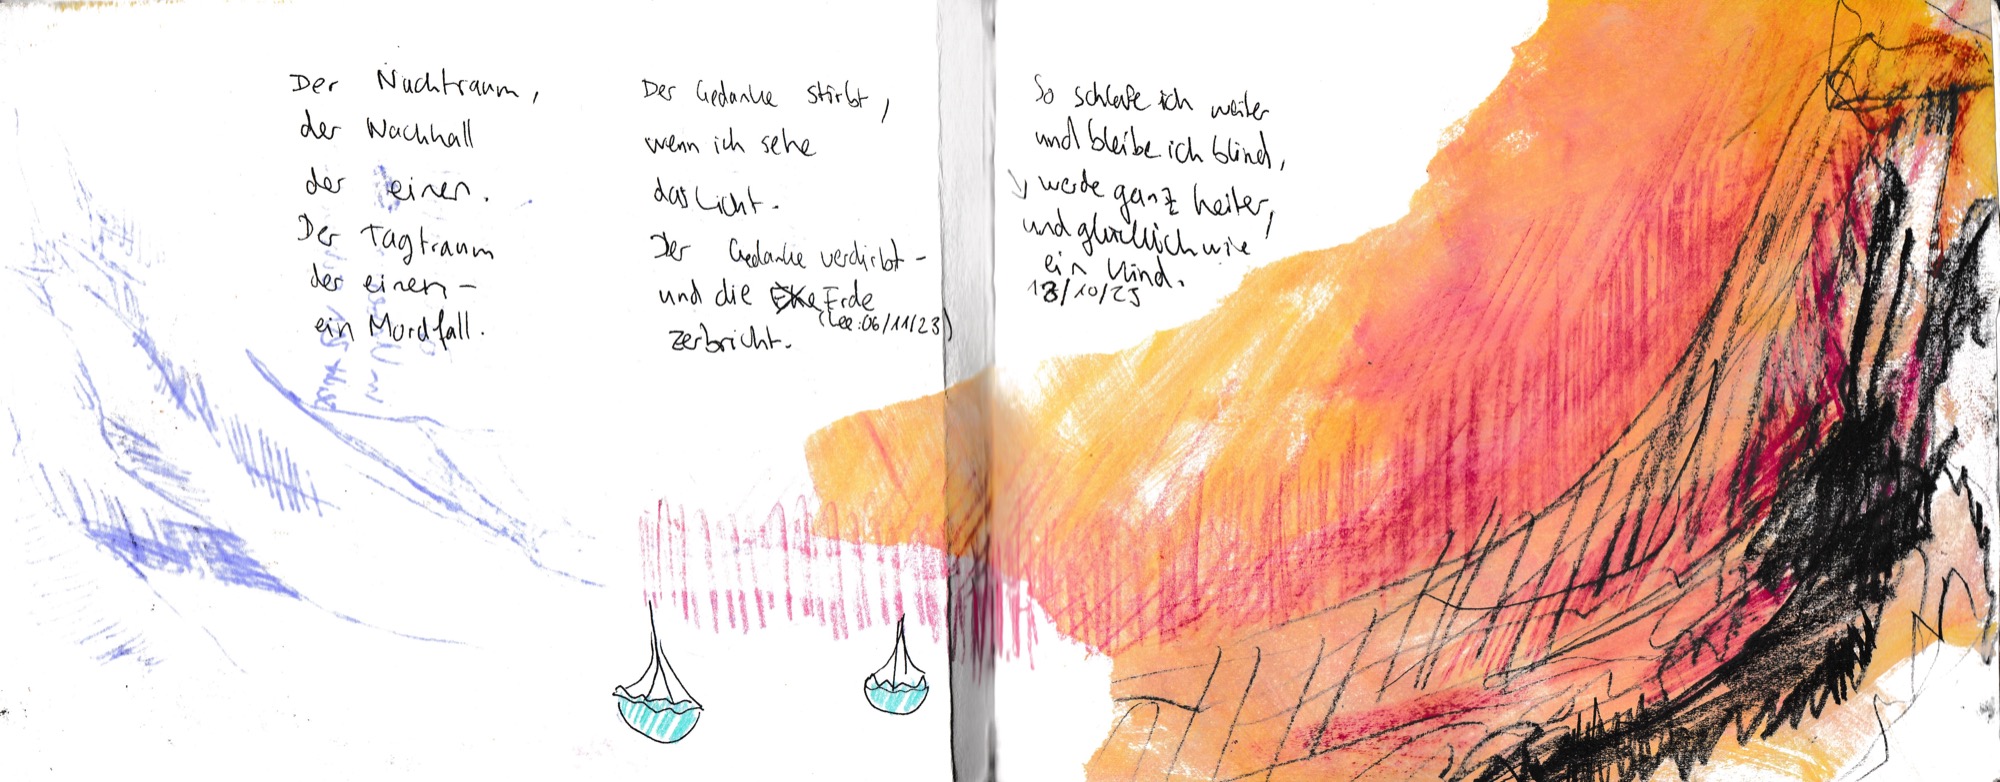 Der Nachtraum,
der Nachhall
der einen.
Der Tagtraum
der einen –
ein Mordfall.
Der Gedanke stirbt,
wenn ich sehe
das Licht.
Der Gedanke verdirbt –
und die Erde
(Lee: 06/11/23)
zerbricht.
So schlafe ich weiter
und bleibe ich blind,
werde ganz heiter,
und glücklich wie
ein Kind.
18/10/23